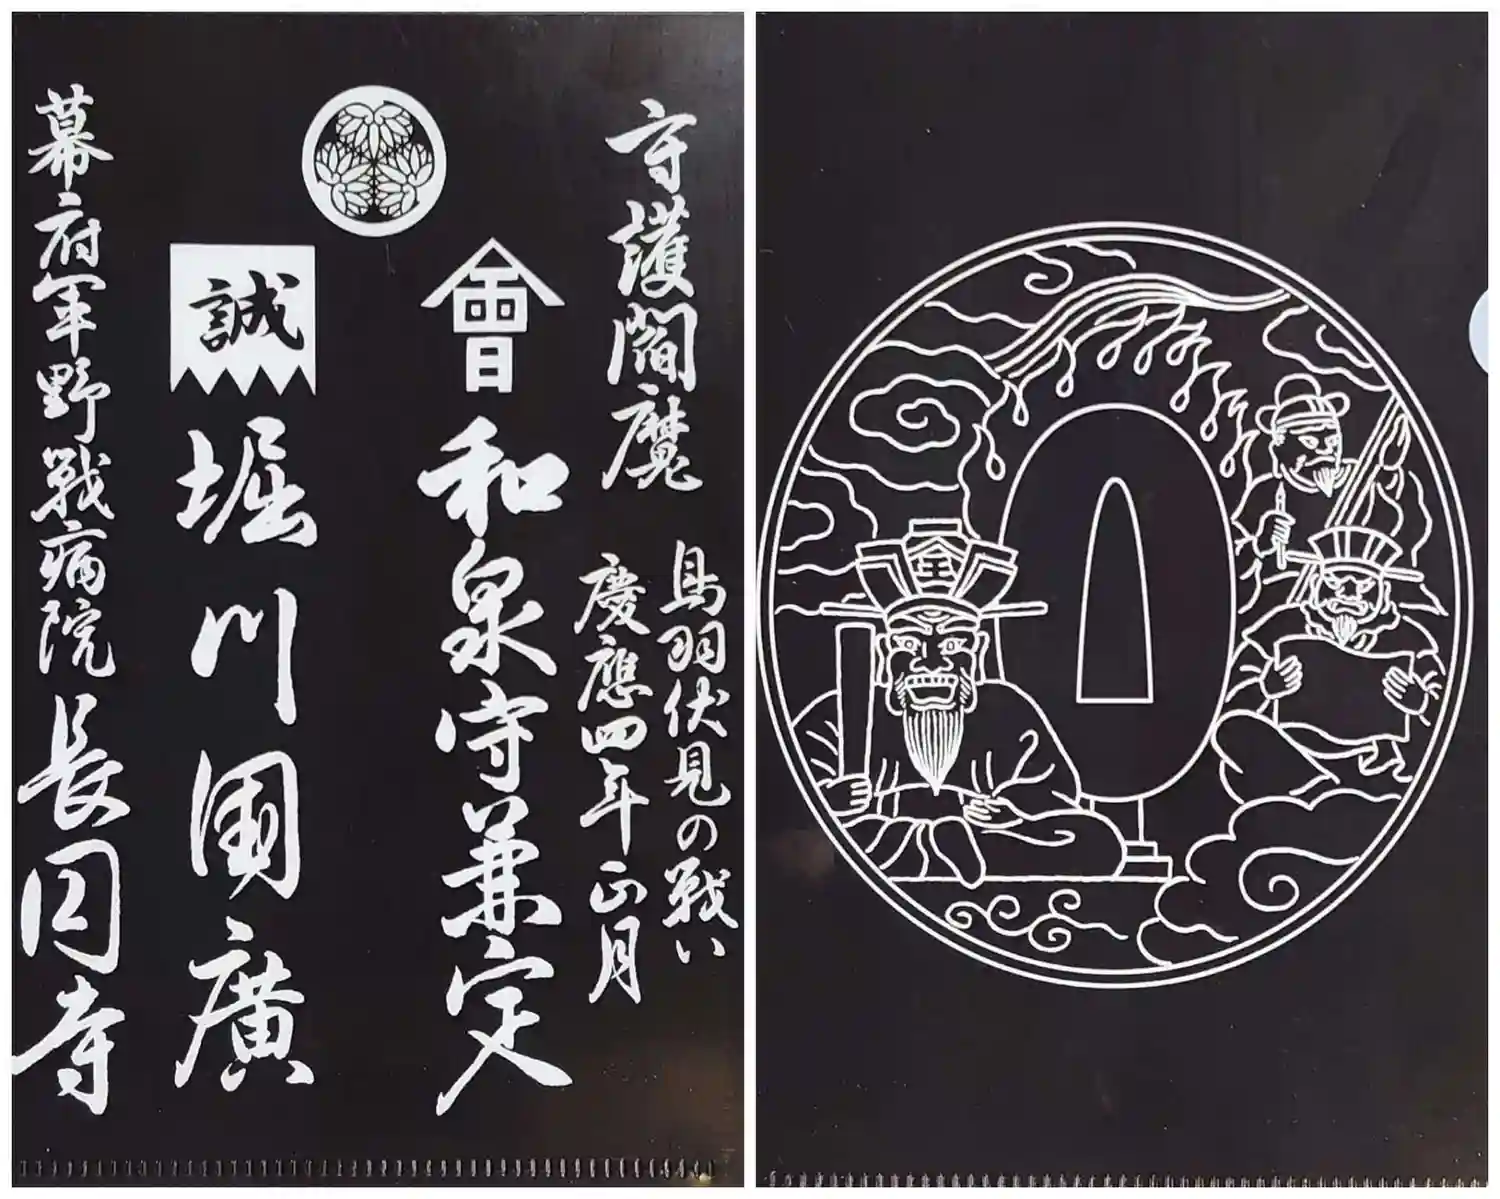 守護閻魔
鳥羽伏見の戦い
慶應四年正月
會
和泉守兼定
誠
堀川國廣
幕府軍野戦病院
長円寺
全